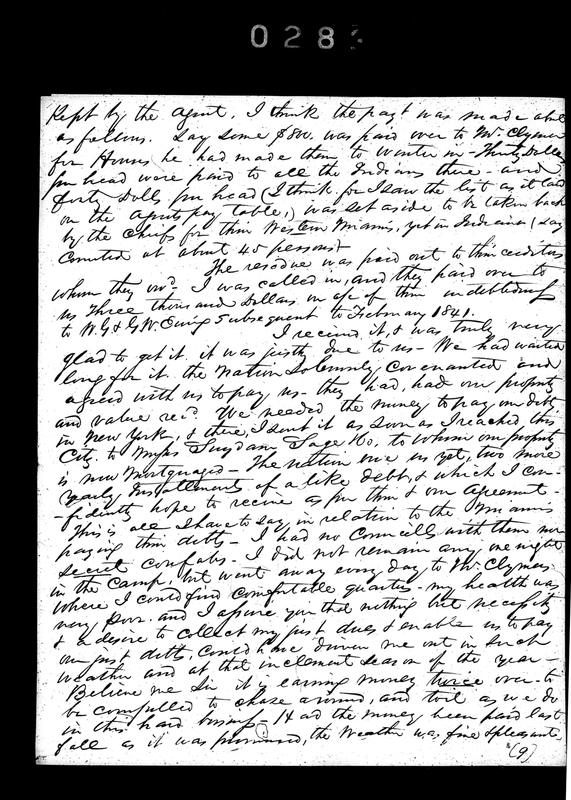 028
Kept by the agent. I think the pay't was made abt
as follows. Say some $800. was paid over to Mr. Clymer
for Houses he had made them to winter in - Thirty Dolls
per head were paid to all the Indians there - and
forty Dolls per head (I think, for I saw the list as it laid
on the agents pay table,) was set aside to be taken back
by the Chiefs for their Western Miamis, yet in Indiana (Say
Counted at about 45 persons)
The residue was paid out to their creditors
whom they owd. I was called in, and they paid over to
us Three thousand Dollars on a/c of their indebtedness
to W.G & G.W. Ewing subsequent to February 1841.
I receivd it, & was truly very
glad to get it. it was justly due to us - We had waited
long for it the Nation solemnly covenanted and
agreed with us to pay us - they had, had our property
and value recd. We needed the money to pay our debt
in New York, & there, I sent it as soon as I reached this
City. to Messrs Suydam, Sage & Co. to whom our property
is now Mortgaged - The nation owe us yet, two more
yearly Installments of a like debt, & which I con-
-fidently hope to receive as per their & our agreement -
This is all I have to say, in relation to the Miamis
paying their debts - I had no Councills with them nor
secret confabs - I did not remain any one night
in the Camp, but went away every day to Mr. Clymers
where I could find comfortable quarters - my health was
very poor. and I assure you that nothing but necessity
& a desire to collect my just dues & enable us to pay
our just debts, could have driven me out in such
weather and at that inclement season of the year -
Believe me Sir it is earning money twice over - to
be compelled to chase around, and toil as we do
in this hard business - Had the money been paid last
fall as it was promised, the Weather was fine & pleasant,
(9)